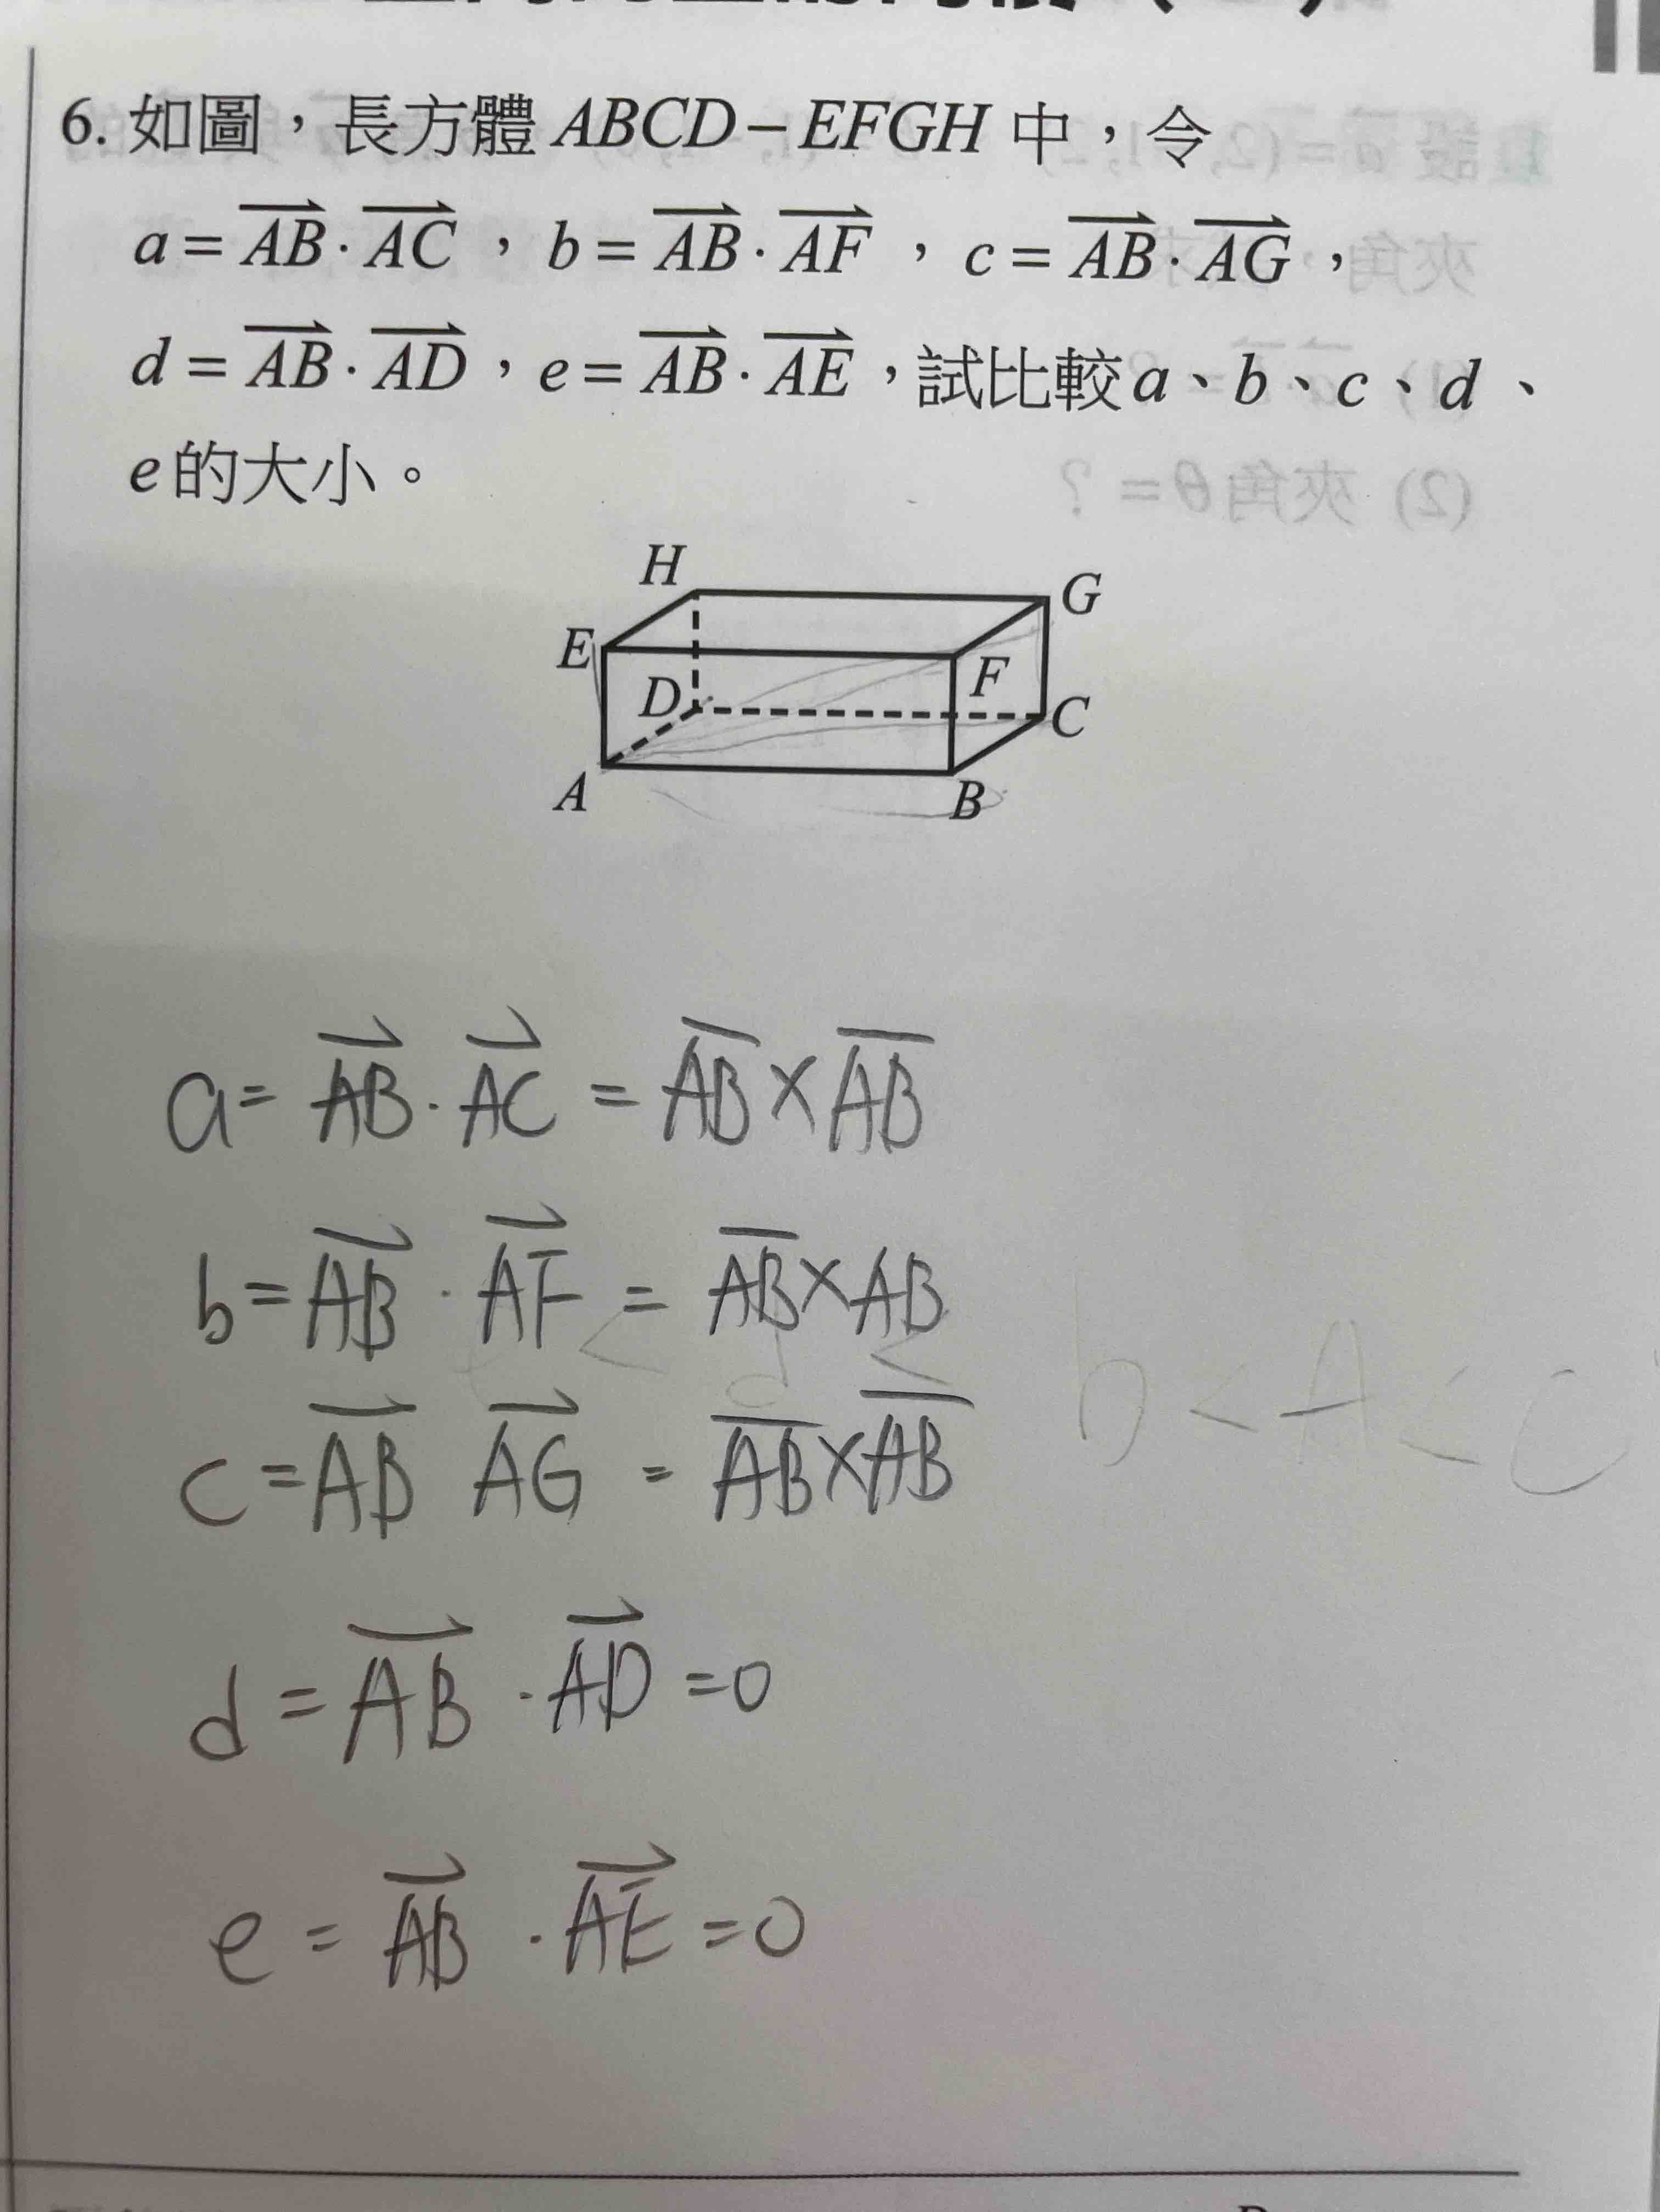 6. 如圖，長方體 ABCD－EFGH 中，令
a = \overrightarrow{AB} · \overrightarrow{AC} ， b = \overrightarrow{AB} · \overrightarrow{AF} ， c = \overrightarrow{AB} · \overrightarrow{AG} ，
d = \overrightarrow{AB} · \overrightarrow{AD} ， e = \overrightarrow{AB} · \overrightarrow{AE} ，試比較 a 、 b 、 c 、 d 、
e 的大小。
(2) 夾角 θ = ?
H
G
E
F
D
C
A
B
a = \overrightarrow{AB} · \overrightarrow{AC} = \overline{AB} × \overline{AB}
b = \overrightarrow{AB} · \overrightarrow{AF} = \overline{AB} × AB
< d < b < A < C
c = \overrightarrow{AB} \overrightarrow{AG} = \overline{AB} × \overline{AB}
d = \overrightarrow{AB} · \overrightarrow{AD} = 0
e = \overrightarrow{AB} · \overrightarrow{AE} = 0